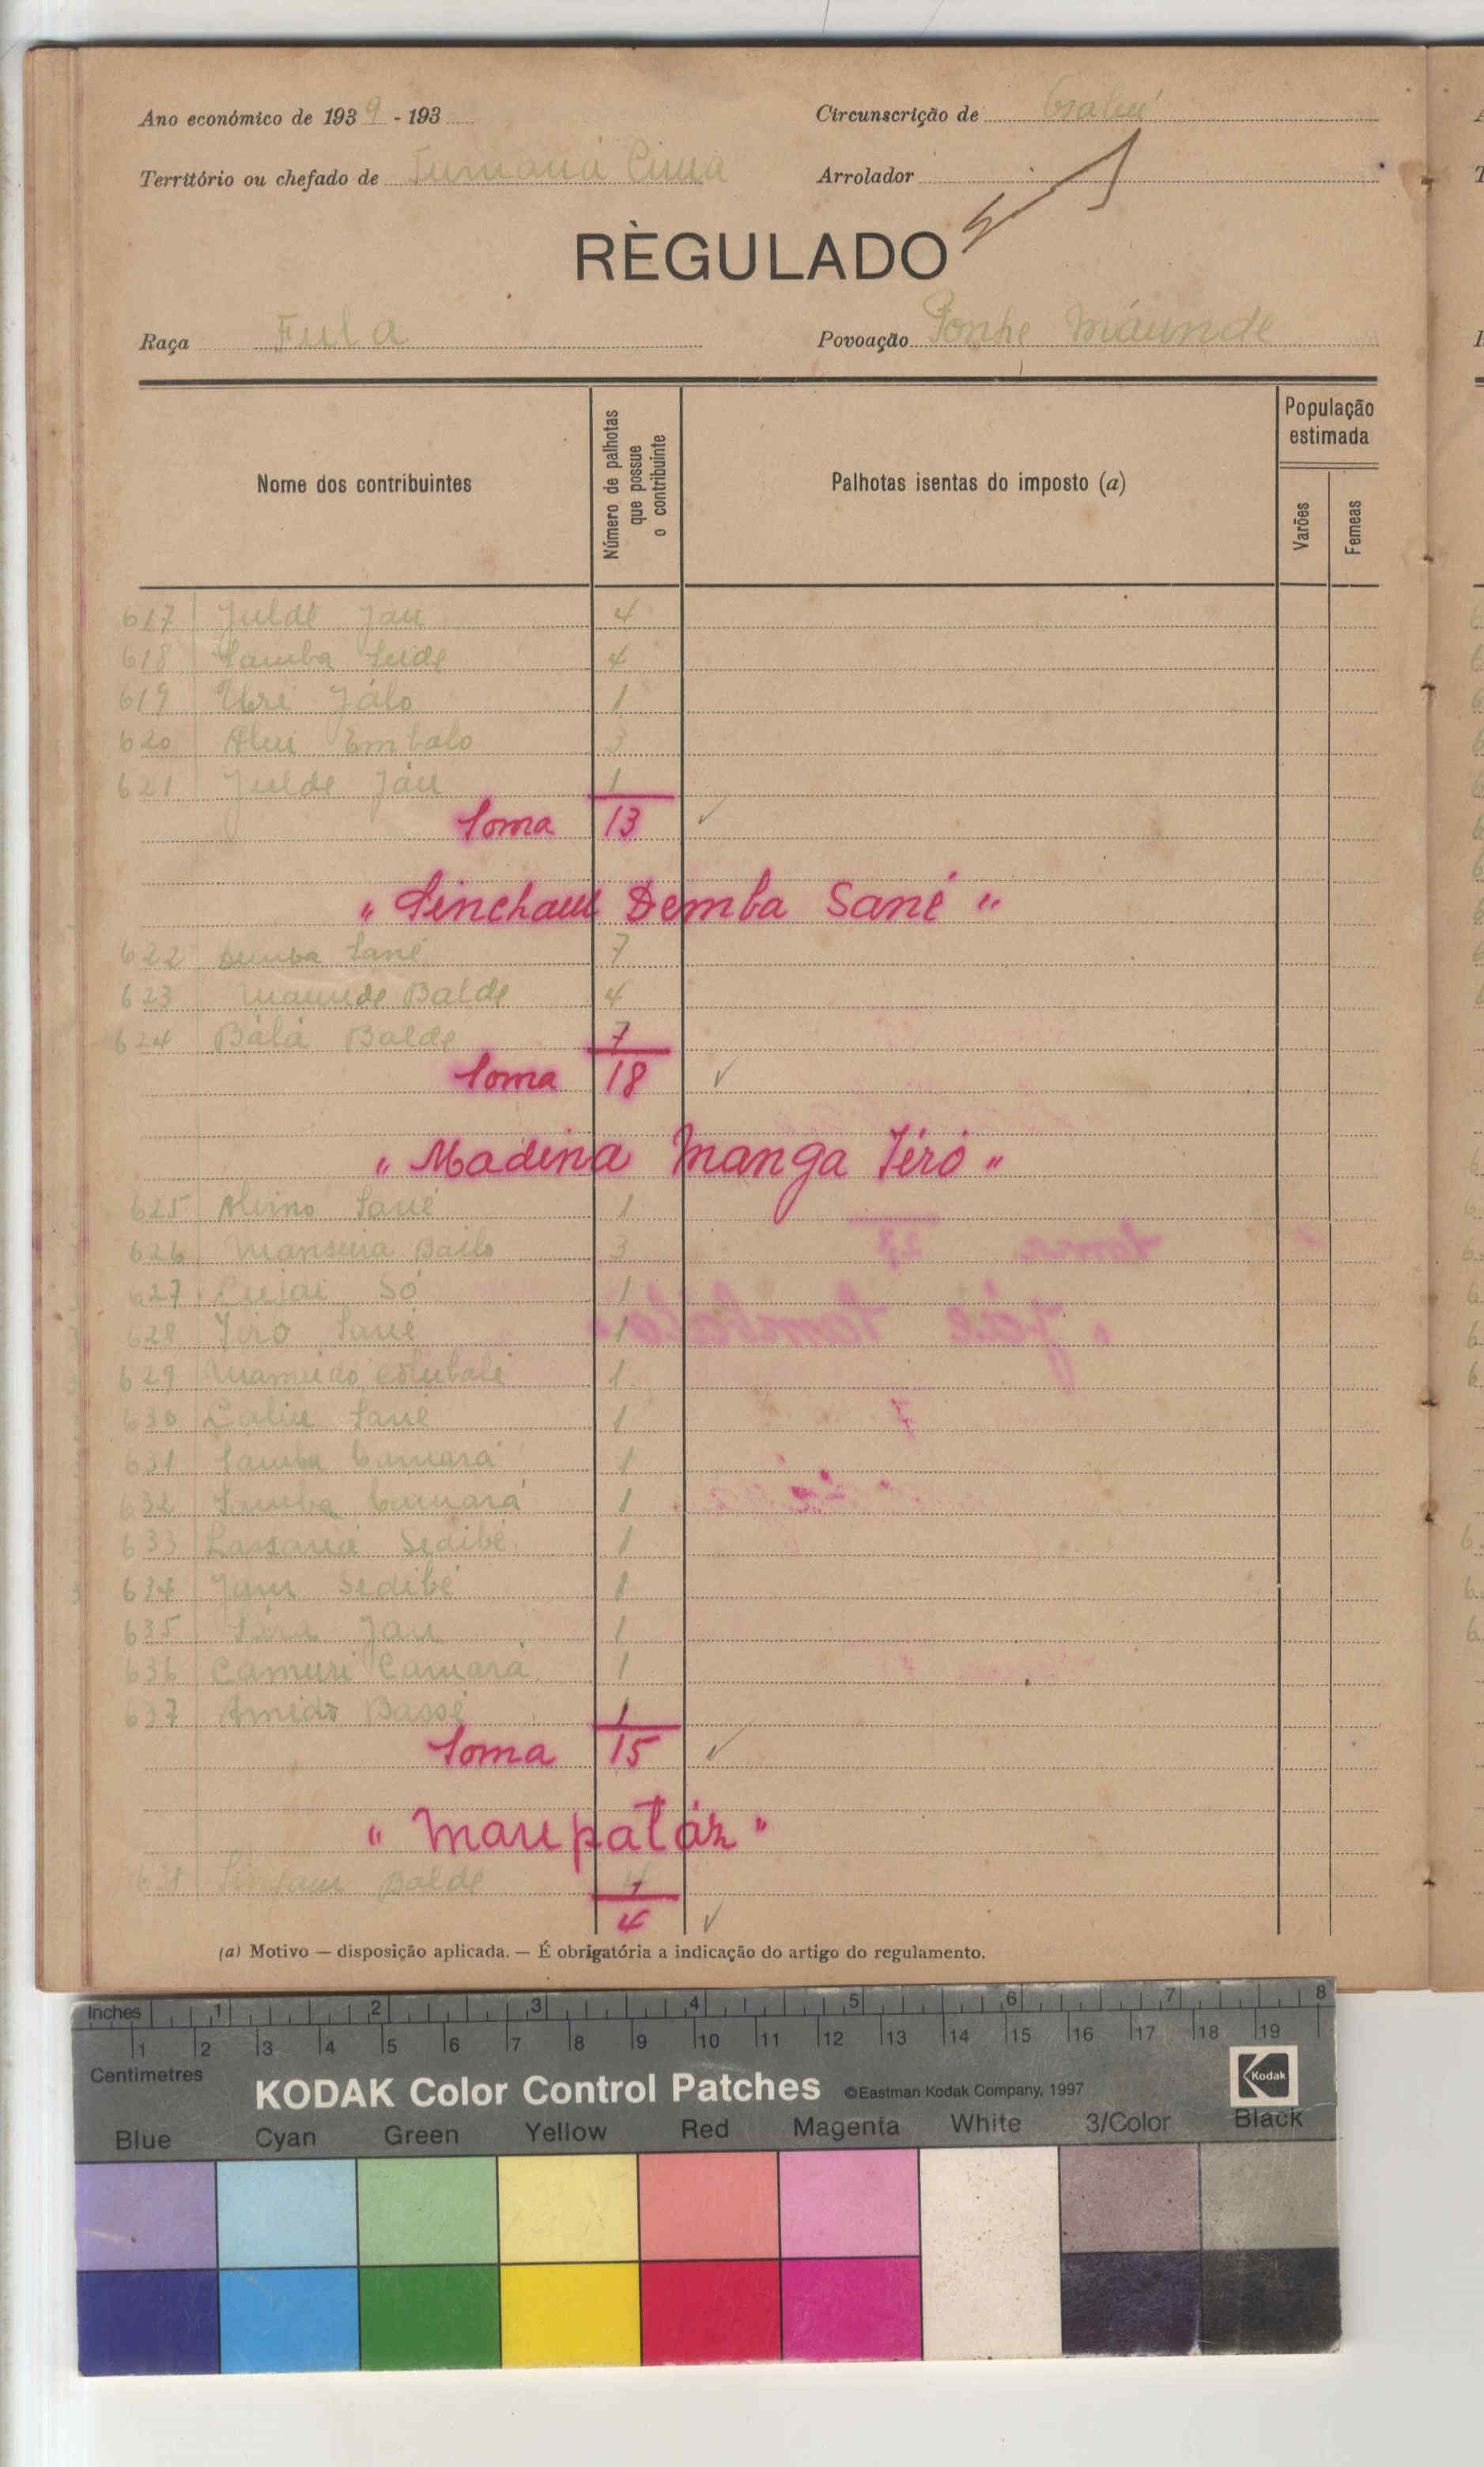 Ano económico de 1939 - 193
Circunscrição de Gabú
Território ou chefado de Tumaná Cima
Arrolador
RÈGULADO
Raça Fula
Povoação Ponhe Máunde
Nome dos contribuintes
Número de palhotas que possue o contribuinte
Palhotas isentas do imposto (a)
População estimada
Varões
Femeas
617 Juldé Jau 4
618 Samba Seide 4
619 Uri Jálo 1
620 Alui Embalo 3
621 Julde Jáu 1
Soma 13 ✓
" Sinchau Demba Sané "
622 Demba Sané 7
623 Maunde Balde 4
624 Bálá Balde 7
Soma 18 ✓
" Madina Manga Jéró "
625 Sané 1
626 Mansura Bailo 3
627 Só 1
628 Jéró Sané 1
629 Mamudo Colubali 1
630 Laliu Sané 1
631 Samba Camará 1
632 Samba Camará 1
633 Lassaná Sedibé 1
634 Sedibé 1
635 Jau 1
636 Camuri Camará 1
637 Amido Bassé 1
Soma 15 ✓
" Maupatáz "
638 Balde 4
4 ✓
(a) Motivo — disposição aplicada. — É obrigatória a indicação do artigo do regulamento.
Inches 1 2 3 4 5 6 7 8
1 2 3 4 5 6 7 8 9 10 11 12 13 14 15 16 17 18 19
Centimetres
KODAK Color Control Patches ©Eastman Kodak Company, 1997 Kodak
Blue Cyan Green Yellow Red Magenta White 3/Color Black